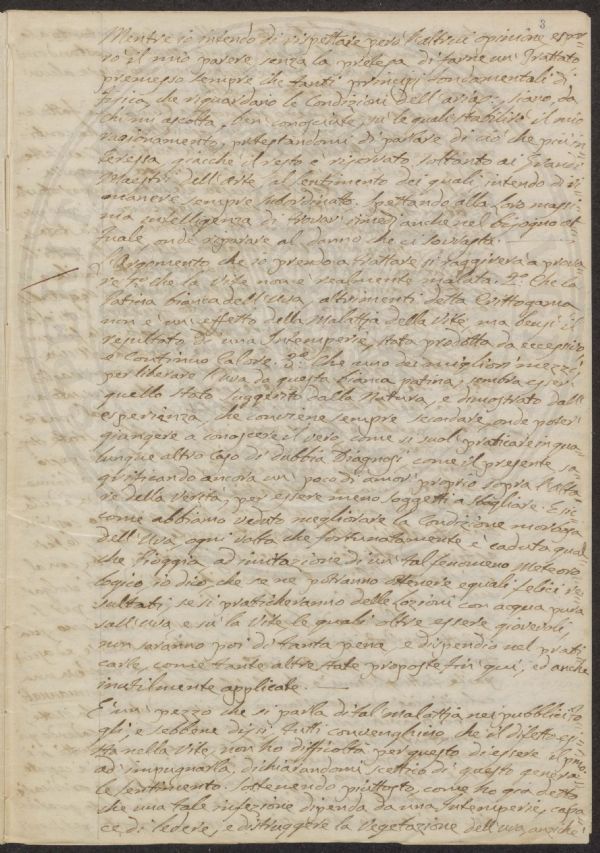 3
Mentre io intendo di rispettare però l'altrui opinione espor=
rò il mio parere senza la pretesa di farne un Trattato
premesso sempre che tanti principj fondamentali di
fisica, che riguardano le Condizioni dell'aria, siano, da
chi mi ascolta, ben conosciute, su le quali stabilirò il mio
ragionamento, protestandomi di parlare di ciò che più in=
teressa, giacchè il resto è riservato soltanto ai Grandi
Maestri dell'Arte, il sentimento dei quali intendo di ri=
manere sempre subordinato. Spettando alla Loro massi=
ma intelligenza di trovar rimedj anche nel bisogno at=
tuale, onde riparare al danno che ci sovrasta.
L'Argomento che io prendo a trattare si raggirerà a prova=
re che la Vite non è realmente malata. 2.° Che la
patina bianca dell'Uva, altrimenti detta Crittogama
non è un effetto della Malattia della Vite, ma bensì il
resultato di una Intemperie, stata prodotta da eccessivo
e Continuo Calore. 3.° Che uno dei migliori mezzi
per liberare l'Uva da questa bianca patina, sembra esser
quello stato suggerito dalla Natura, e dimostrato dall'
esperienza, che conviene sempre secondare, onde poter
giungere a conoscere il vero, come si suol praticare in qua=
lunque altro Caso di dubbia Diagnosi, come il presente, sa=
grificando ancora un poco di amor proprio sopra l'Alta=
re della Verità, per essere meno soggetti a sbagliare. E sic=
come abbiamo veduto megliorare la Condizione morbosa
dell'Uva, ogni volta che fortunatamente è caduta qual
che Pioggia, ad imitazione di un tal fenomeno Meteoro=
logico, io dico che se ne potranno ottenere eguali felici re=
sultati, se si praticheranno delle Lozioni con acqua pura
sull'Uva, e su la Vite le quali oltre essere giovevoli,
non saranno poi di tanta pena e dispendio nel prati
carle, come tante altre state proposte fin quì, ed anche
inutilmente applicate.
È un pezzo che si parla di tal malattia nei pubblici fo=
gli, e sebbene di più tutti convenghino, che il difetto esi=
sta nella Vite, non ho difficoltà per questo di essere il primo
ad impugnarla, dichiarandomi scettico di questo genera=
le sentimento. Sostenendo piuttosto, come ho già detto
che una tale infezione dipenda da una Intemperie, capa
ce di ledere, e distruggere la Vegetazione dell'uva, anzichè